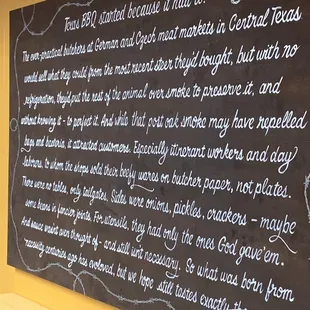 Texas BBQ started because it had to.
The ever-practical butchers at German and Czech meat markets in Central Texas
would sell what they could from the most recent steer they'd bought, but with no
refrigeration, they'd put the rest of the animal over smoke to preserve it, and
without knowing it - to perfect it. And while that post oak smoke may have repelled
bugs and bacteria, it attracted customers. Especially itinerant workers and day
laborers, to whom the shops sold their beefy wares on butcher paper, not plates.
There were no tables, only tailgates. Sides were onions, pickles, crackers – maybe
some beans in fancier joints. For utensils, they had only the ones God gave 'em.
And sauce wasn't even thought of - and still isn't necessary. So what was born from
necessity centuries ago has evolved, but we hope still tastes exactly the